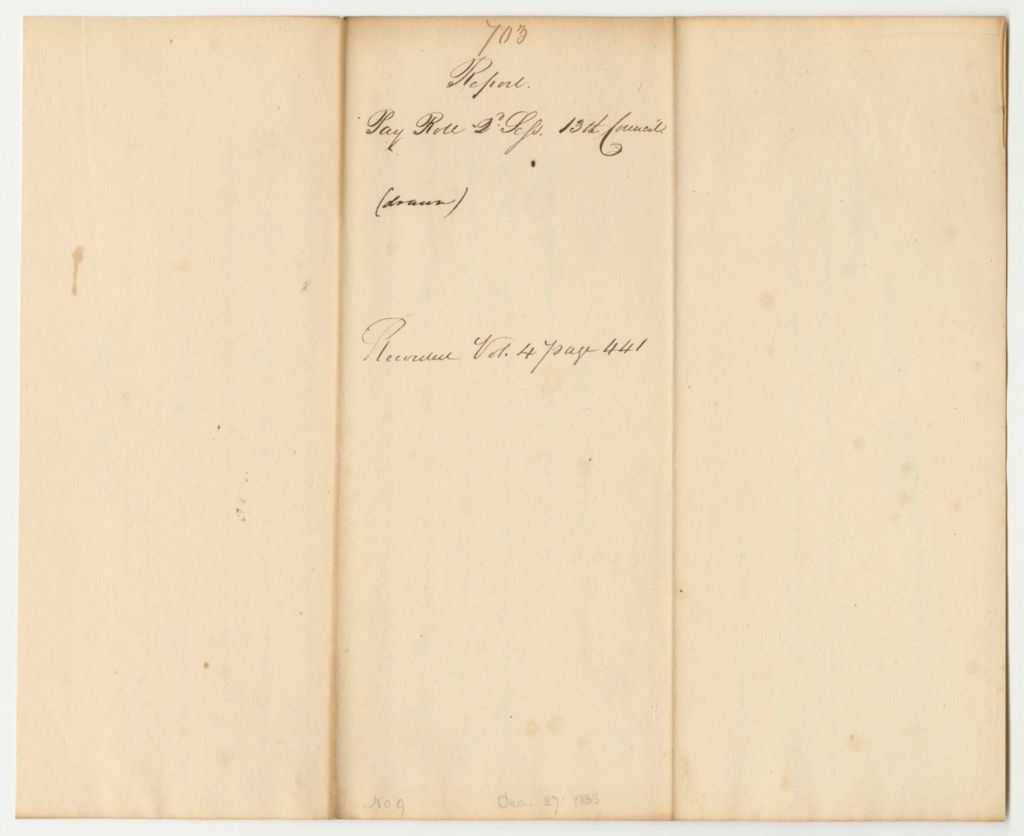 703
Report.
Pay Roll 2d. Sess. 13th Council
(drawn)
Recorded Vol. 4 page 441
No 9 Dec. 27. 1833